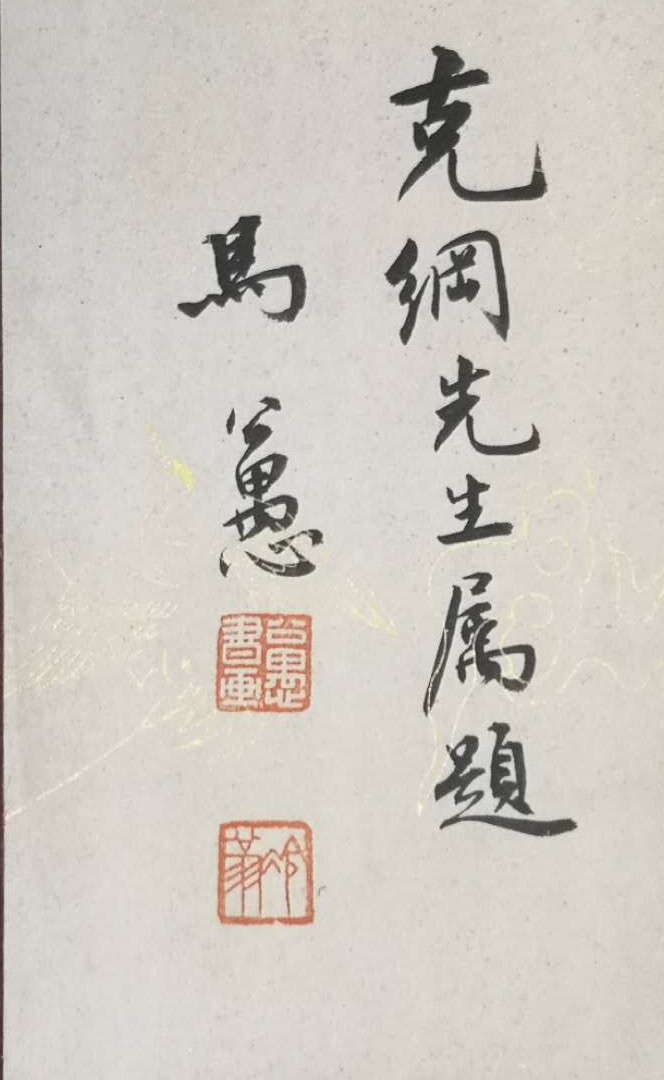 克綱先生属題
馬公愚
公愚書画